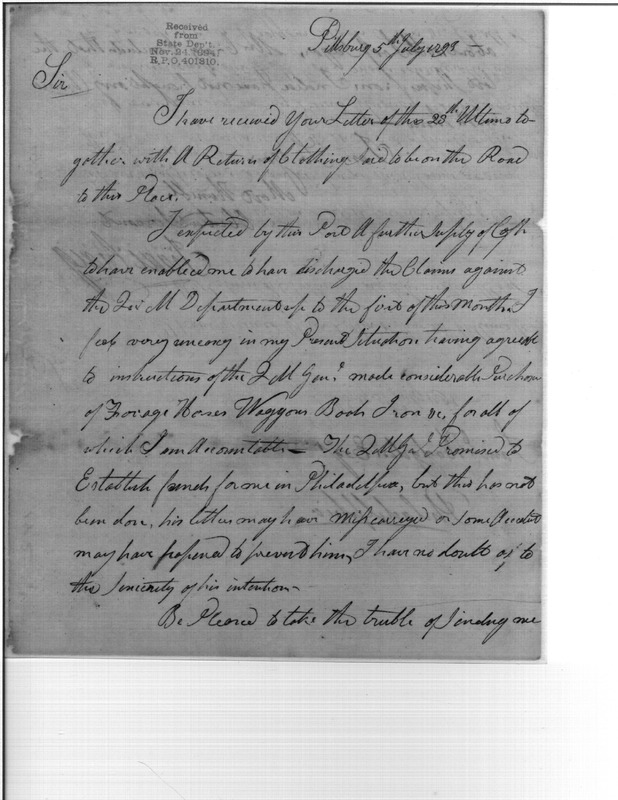 Received
from
State Dep't.
Nov. 24, 1894
R.P.O, 401810.
Pittsburg 5th July 1793 —
Sir
I have received Your Letter of the 28th Ultimo to-
gether with A Return of Clothing said to be on the Road
to this Place.
I expected by this Post A further Supply of Cash
to have enabled me to have discharged the Claims against
the Qr M Department up to the first of this Month, I
feel very uneasy in my Present Situation having agreeable
to instructions of the QM Genl made considerable Purchases
of Forage Horses Waggons Boats Iron &c, for all of
which I am Accountable — The QM Gl Promised to
Establish funds for me in Philadelphia, but this has not
been done, his letters may have misscarryed or some Accident
may have hapened to prevent him, I have no doubt as to
the Sincerity of his intention —
Be Pleased to take the truble of Sending me